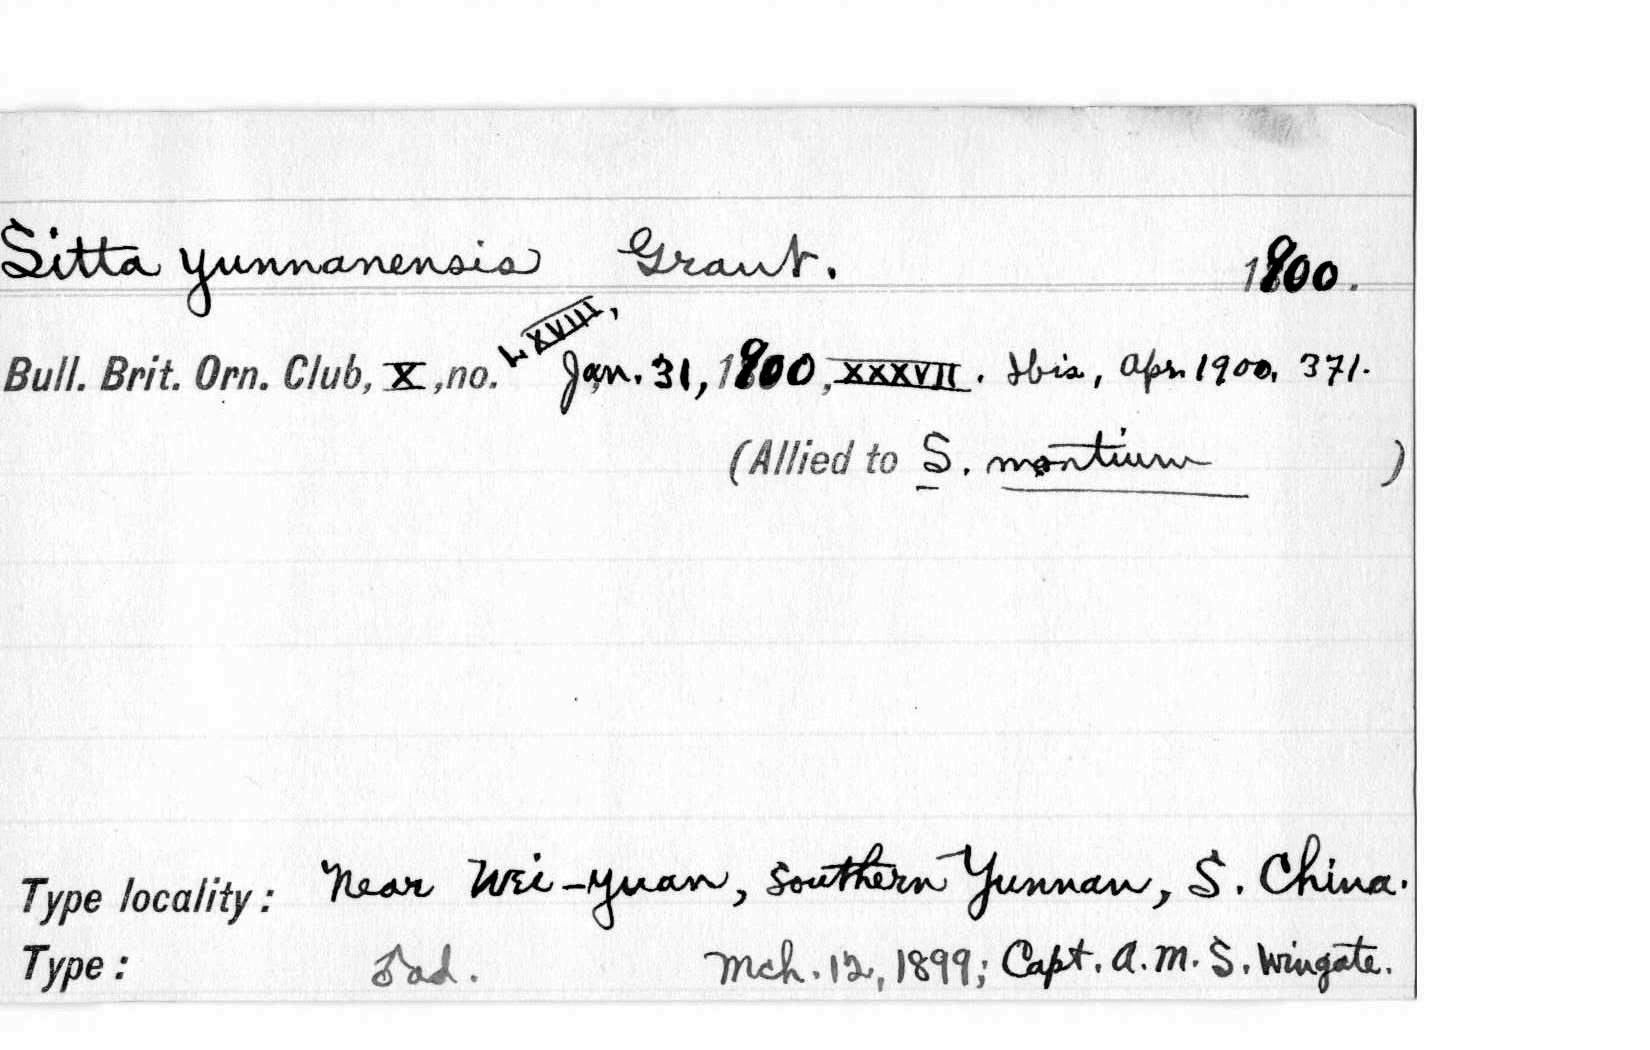 Sitta yunnanensis Grant. 1900.
Bull. Brit. Orn. Club, X, no. LXVIII, Jan. 31, 1900, XXXVII. Ibis, Apr. 1900, 371.
(Allied to S. montium )
Type locality: Near Wei-yuan, Southern Yunnan, S. China.
Type: ad. Mch. 12, 1899; Capt. A. M. S. Wingate.